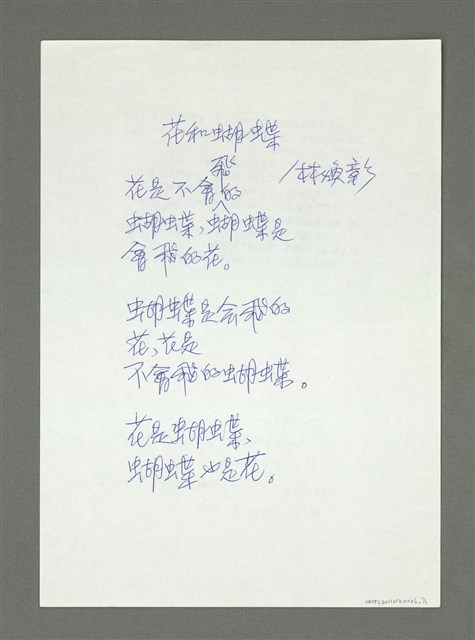 花和蝴蝶
/林煥彰
花是不會飛的
蝴蝶,蝴蝶是
會飛的花。
蝴蝶是会飛的
花,花是
不會飛的蝴蝶。
花是蝴蝶、
蝴蝶也是花。